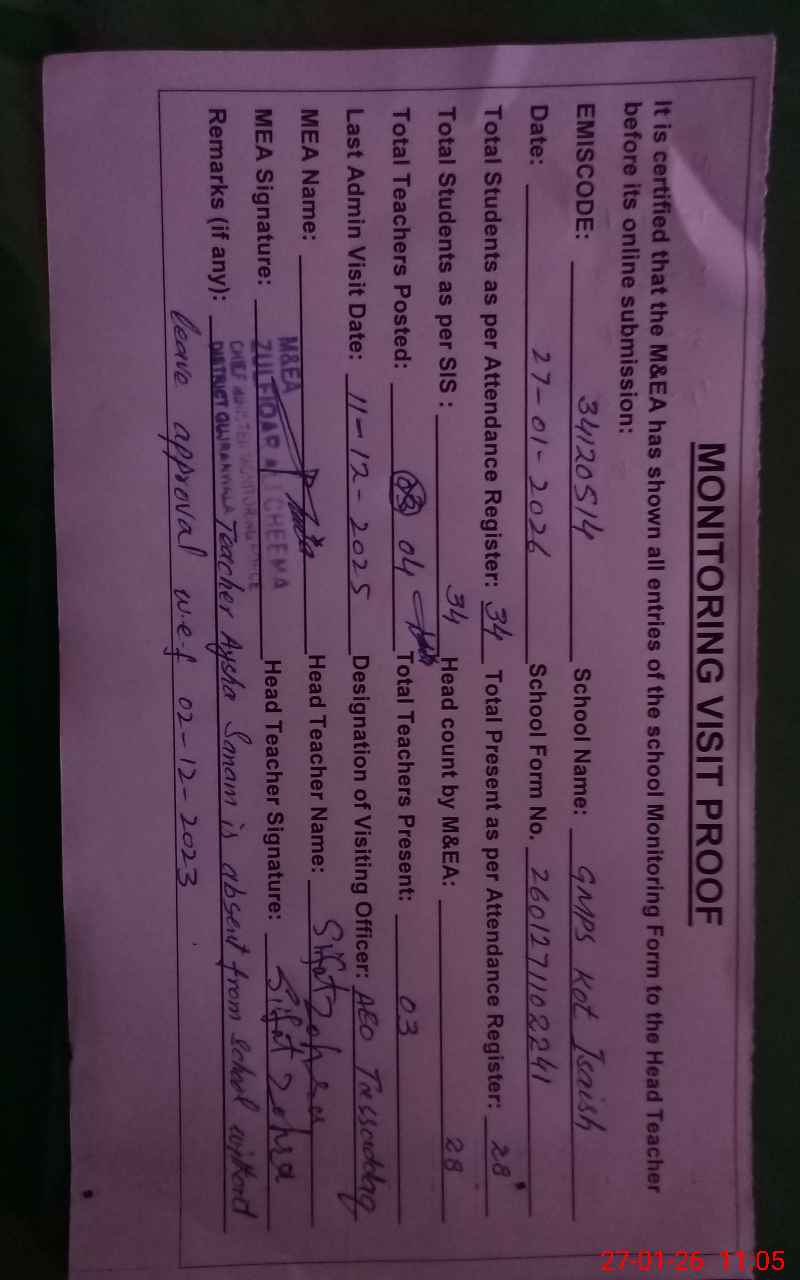 MONITORING VISIT PROOF
It is certified that the M&EA has shown all entries of the school Monitoring Form to the Head Teacher
before its online submission:
EMISCODE: 34120514 School Name: GMPS Kot Isaish
Date: 27-01-2026 School Form No. 2601271102241
Total Students as per Attendance Register: 34 Total Present as per Attendance Register: 28
Total Students as per SIS : 34 Head count by M&EA: 28
Total Teachers Posted: 03 04 Total Teachers Present: 03
Last Admin Visit Date: 11-12-2025 Designation of Visiting Officer: AEO Tassaddaq
MEA Name: Head Teacher Name: Sifat Zohra
M&EA
MEA Signature: ZULFIQAR ALI CHEEMA Head Teacher Signature: Sifat Zohra
CHIEF MONITORING
Remarks (if any): DISTRICT GUJRANWALA Teacher Aysha Sanam is absent from school without
leave approval w.e.f 02-12-2023
27-01-26 11:05